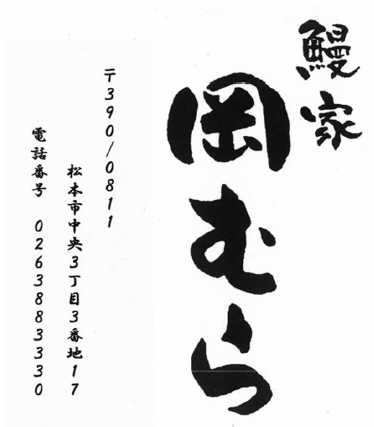 鰻家
岡むら
〒390/0811
松本市中央3丁目3番地17
電話番号 0263883330